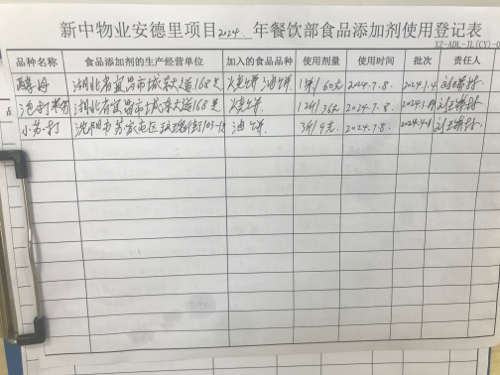 新中物业安德里项目2024年餐饮部食品添加剂使用登记表
XZ-ADL-JL(CY)-0
品种名称 食品添加剂的生产经营单位 加入的食品品种 使用剂量 使用时间 批次 责任人
酵母 湖北省宜昌市城东大道168号 火烧饼 油饼 60克 2024.7.8. 2024.1.4
泡打粉 湖北省宜昌市城东大道168号 烧饼 36克 2024.7.8.
小苏打 沈阳市苏家屯区 油饼 9克 2024.7.8